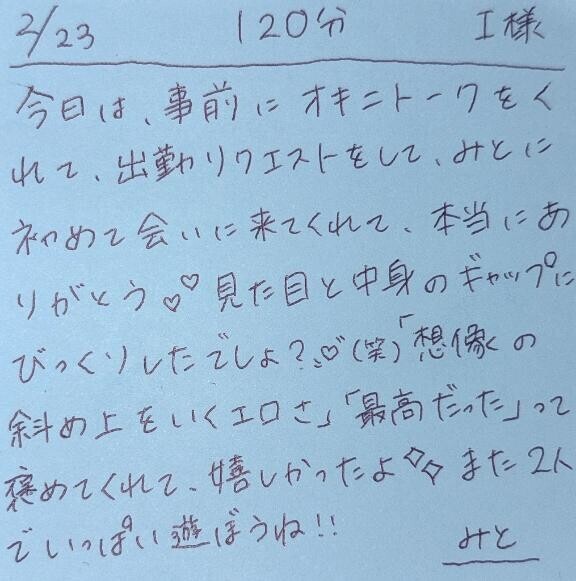 2/23 120分 I様
今日は、事前にオキニトークをく
れて、出勤リクエストをして、みとに
初めて会いに来てくれて、本当にあ
りがとう♡♡見た目と中身のギャップに
びっくりしたでしょ?♡(笑)「想像の
斜め上をいくエロさ」「最高だった」って
褒めてくれて、嬉しかったよ◇◇また2人
でいっぱい遊ぼうね!!
みと